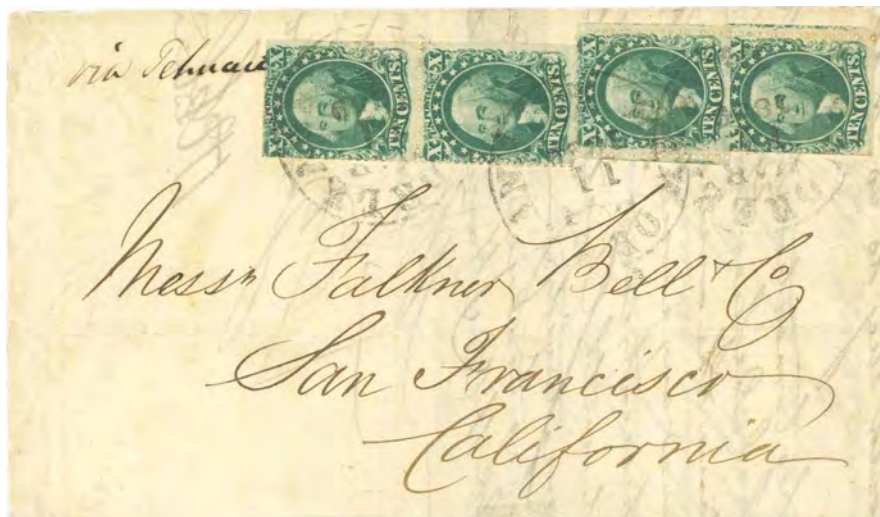 via
X TEN CENTS X
X TEN CENTS X
X TEN CENTS X
X TEN CENTS
11
Messrs Falkner Bell & Co
San Francisco
California